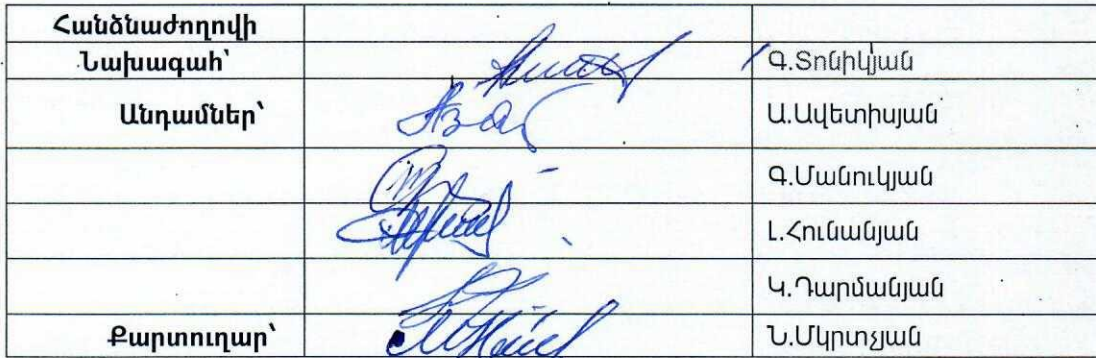 Հանձնաժողովի
Նախագահ՝ Գ.Տոնիկյան
Անդամներ՝ Ա.Ավետիսյան
Գ.Մանուկյան
Լ.Հունանյան
Կ.Դարմանյան
Քարտուղար՝ Ն.Մկրտչյան